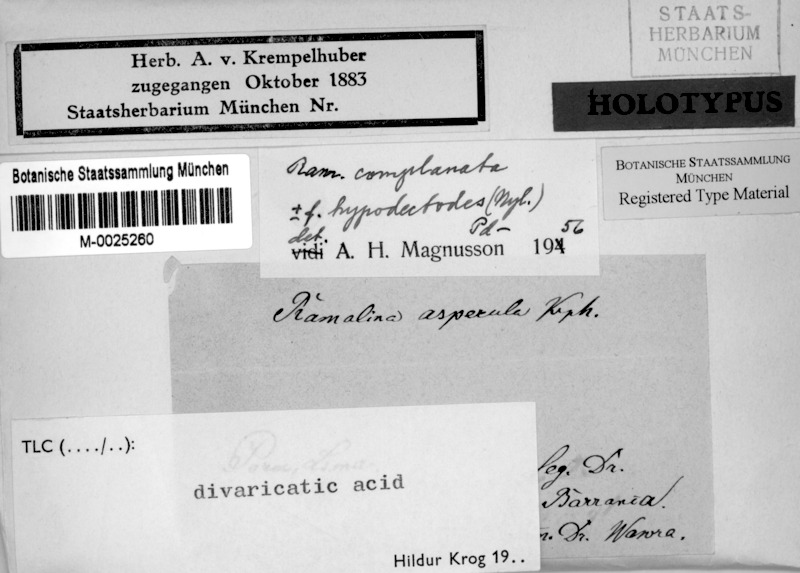 STAATS-
HERBARIUM
MÜNCHEN
Herb. A. v. Krempelhuber
zugegangen Oktober 1883
Staatsherbarium München Nr.
HOLOTYPUS
Botanische Staatssammlung München
M-0025260
Ram. complanata
± f. hypodectodes (Nyl.)
Pd-
det.
vidi A. H. Magnusson 194 56
BOTANISCHE STAATSSAMMLUNG
MÜNCHEN
Registered Type Material
Ramalina asperula Krph.
TLC (..../..):
divaricatic acid
Hildur Krog 19..
leg. Dr.
Barrania.
Dr. Wawra.